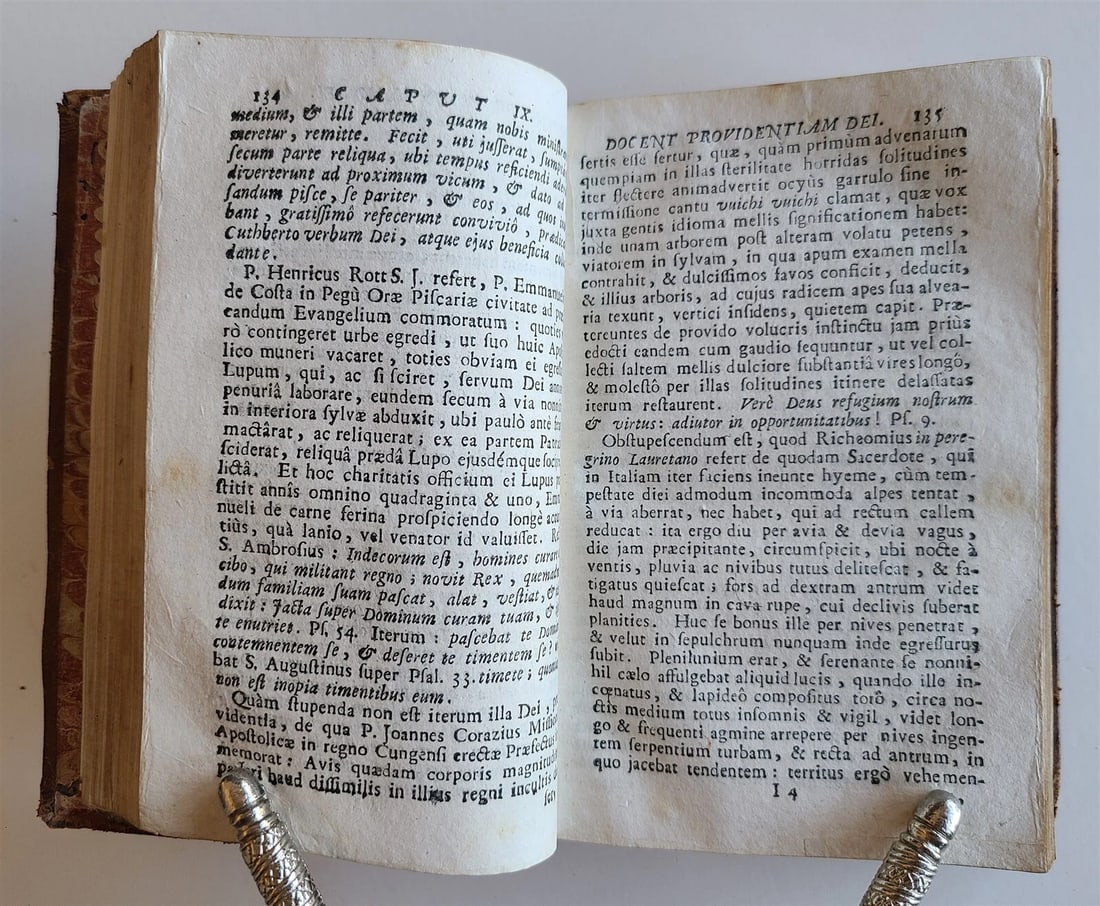 134 CAPUT IX.
medium, & illi partem, quam nobis
meretur, remitte. Fecit, uti juſſerat,
ſecum parte reliqua, ubi tempus reficiendi
diverterunt ad proximum vicum, & dato
ſandum piſce, ſe pariter, & eos, ad quos
bant, gratiſſimô refecerunt conviviô,
Cuthberto verbum Dei, atque ejus beneficia
dante.
P. Henricus Rott S. J. refert, P. Emmanue
de Coſta in Pegù Oræ Piſcariæ civitate ad
candum Evangelium commoratum : quoties
rò contingeret urbe egredi, ut ſuo huic
lico muneri vacaret, toties obviam ei
Lupum, qui, ac ſi ſciret, ſervum Dei
penuriâ laborare, eundem ſecum à via
in interiora ſylvæ abduxit, ubi paulò antè
mactârat, ac reliquerat; ex ea partem
ſciderat, reliquâ prædâ Lupo ejusdémque
lictâ. Et hoc charitatis officium ei Lupus
ſtitit annîs omnino quadraginta & uno,
nueli de carne ferina proſpiciendo longè
tiùs, quà lanio, vel venator id valuiſſet.
S. Ambroſius : Indecorum eſt, homines
cibo, qui militant regno; novit Rex,
dum familiam ſuam paſcat, alat, veſtiat,
dixit : Jacta ſuper Dominum curam tuam, &
te enutriet. Pſ. 54. Iterum : paſcebat te
contemnentem ſe, & deſeret te timentem ſe?
bat S. Auguſtinus ſuper Pſal. 33. timete;
non eſt inopia timentibus eum.
Quàm ſtupenda non eſt iterum illa Dei,
videntia, de qua P. Joannes Corazius
Apoſtolicæ in regno Cungenſi erectæ
memorat : Avis quædam corporis
haud diſſimilis in illius regni incultis
DOCENT PROVIDENTIAM DEI. 135
ſertis eſſe fertur, quæ, quàm primùm advenarum
quempiam in illas ſterilitate horridas ſolitudines
iter flectere animadvertit ocyùs garrulo ſine in-
termiſſione cantu vuichi vuichi clamat, quæ vox
juxta gentis idioma mellis ſignificationem habet:
inde unam arborem poſt alteram volatu petens,
viatorem in ſylvam, in qua apum examen mella
contrahit, & dulciſſimos favos conficit, deducit,
& illius arboris, ad cujus radicem apes ſua alvea-
ria texunt, vertici inſidens, quietem capit. Præ-
tereuntes de provido volucris inſtinctu jam priùs
edocti eandem cum gaudio ſequuntur, ut vel col-
lecti ſaltem mellis dulciore ſubſtantiâ vires longô,
& moleſtô per illas ſolitudines itinere delaſſatas
iterum reſtaurent. Verè Deus refugium noſtrum
& virtus: adiutor in opportunitatibus! Pſ. 9.
Obſtupeſcendum eſt, quod Richeomius in pere-
grino Lauretano refert de quodam Sacerdote, quî
in Italiam iter faciens ineunte hyeme, cùm tem-
peſtate diei admodum incommoda alpes tentat,
à via aberrat, nec habet, qui ad rectum callem
reducat : ita ergo diu per avia & devia vagus,
die jam præcipitante, circumſpicit, ubi nocte à
ventis, pluvia ac nivibus tutus deliteſcat, & fa-
tigatus quieſcat; fors ad dextram antrum videt
haud magnum in cava rupe, cui declivis ſuberat
planities. Huc ſe bonus ille per nives penetrat,
& velut in ſepulchrum nunquam inde egreſſurus
ſubit. Plenilunium erat, & ſerenante ſe nonni-
hil cælo affulgebat aliquid lucis, quando ille in-
cœnatus, & lapideô compoſitus torô, circa no-
ctis medium totus inſomnis & vigil, videt lon-
go & frequenti agmine arrepere per nives ingen-
tem ſerpentium turbam, & recta ad antrum, in
quo jacebat tendentem : territus ergò vehemen-
I 4